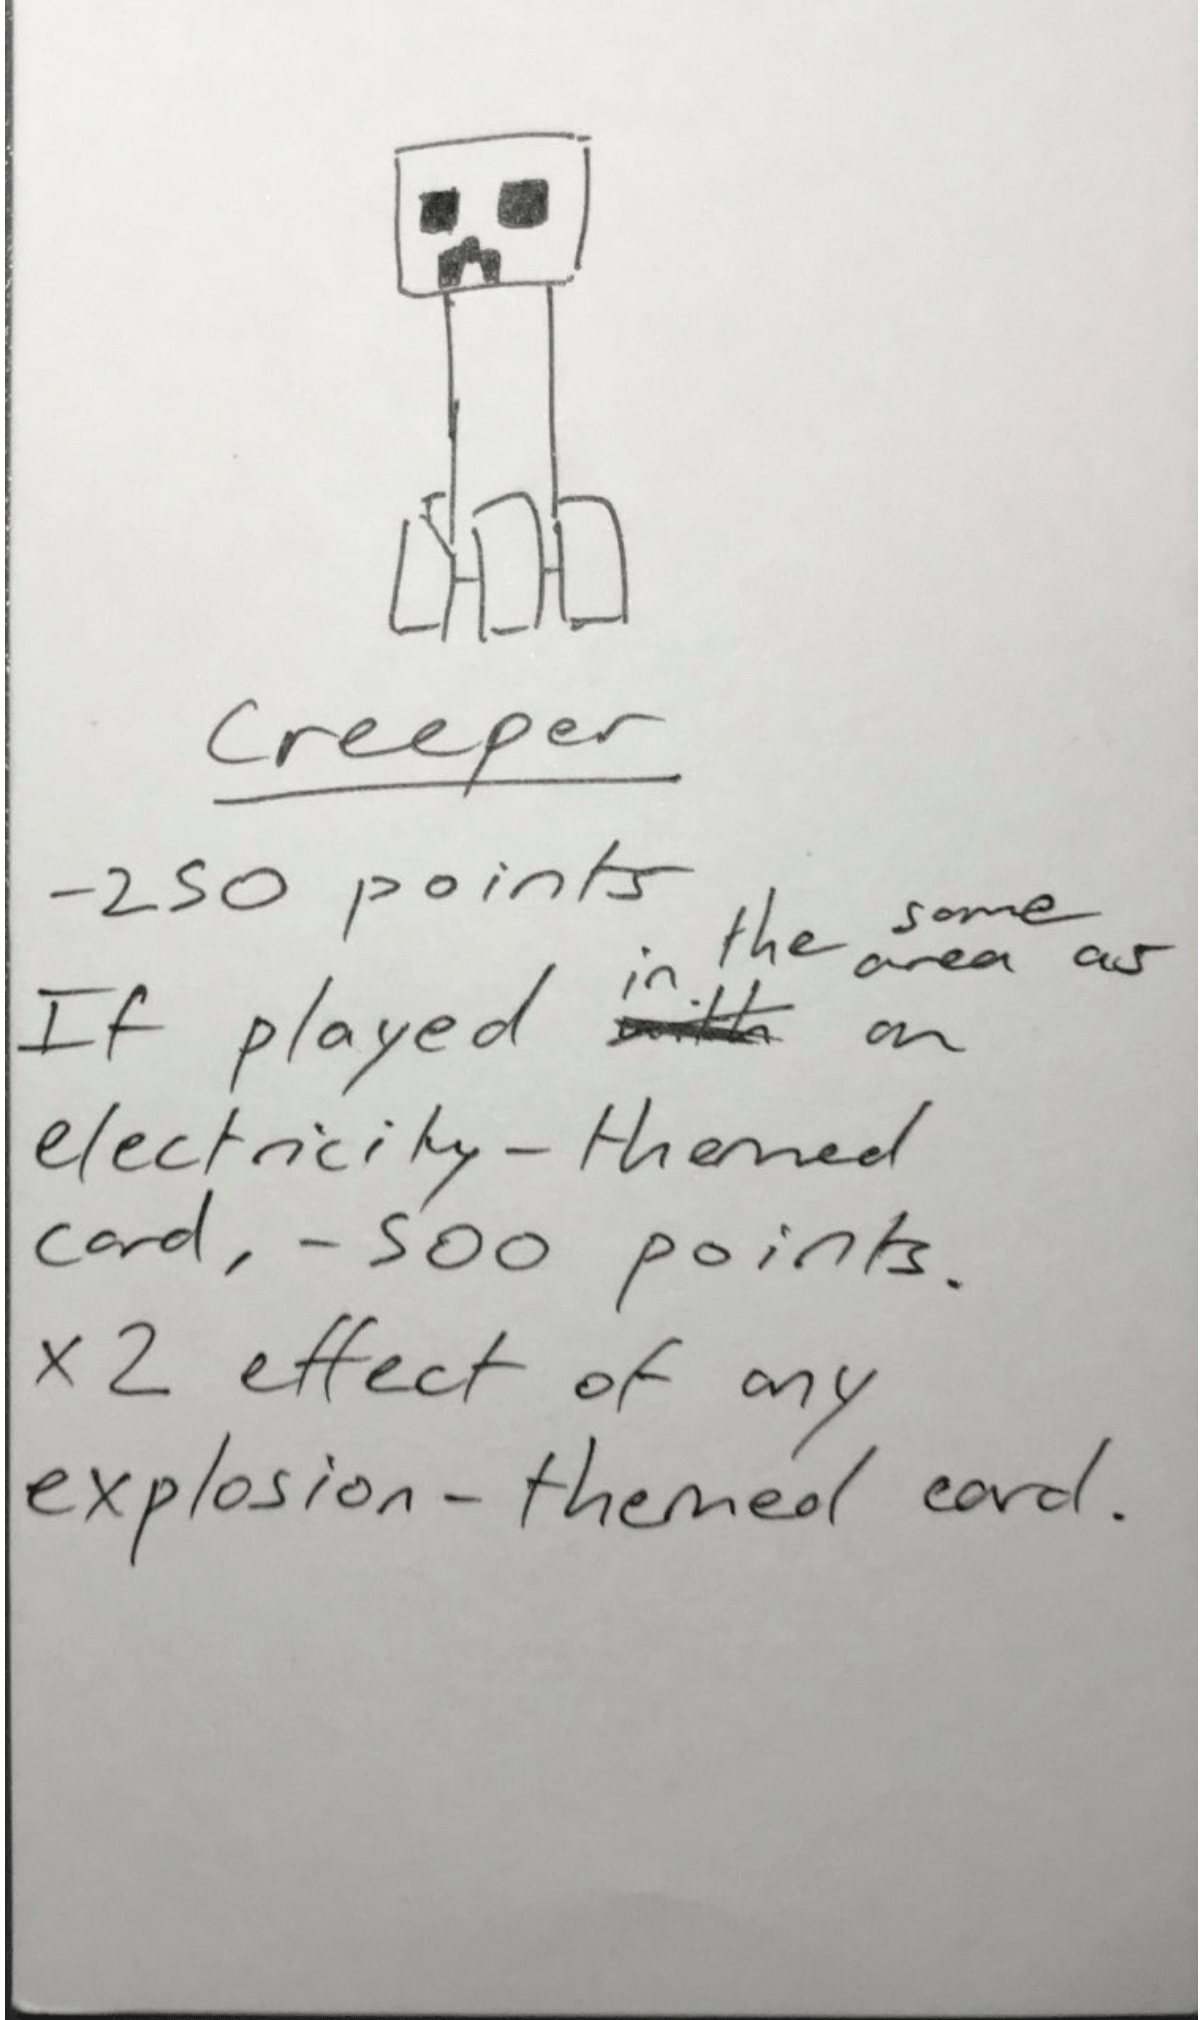 Creeper
-250 points
If played in the same area as an
electricity-themed
card, -500 points.
x2 effect of any
explosion-themed card.